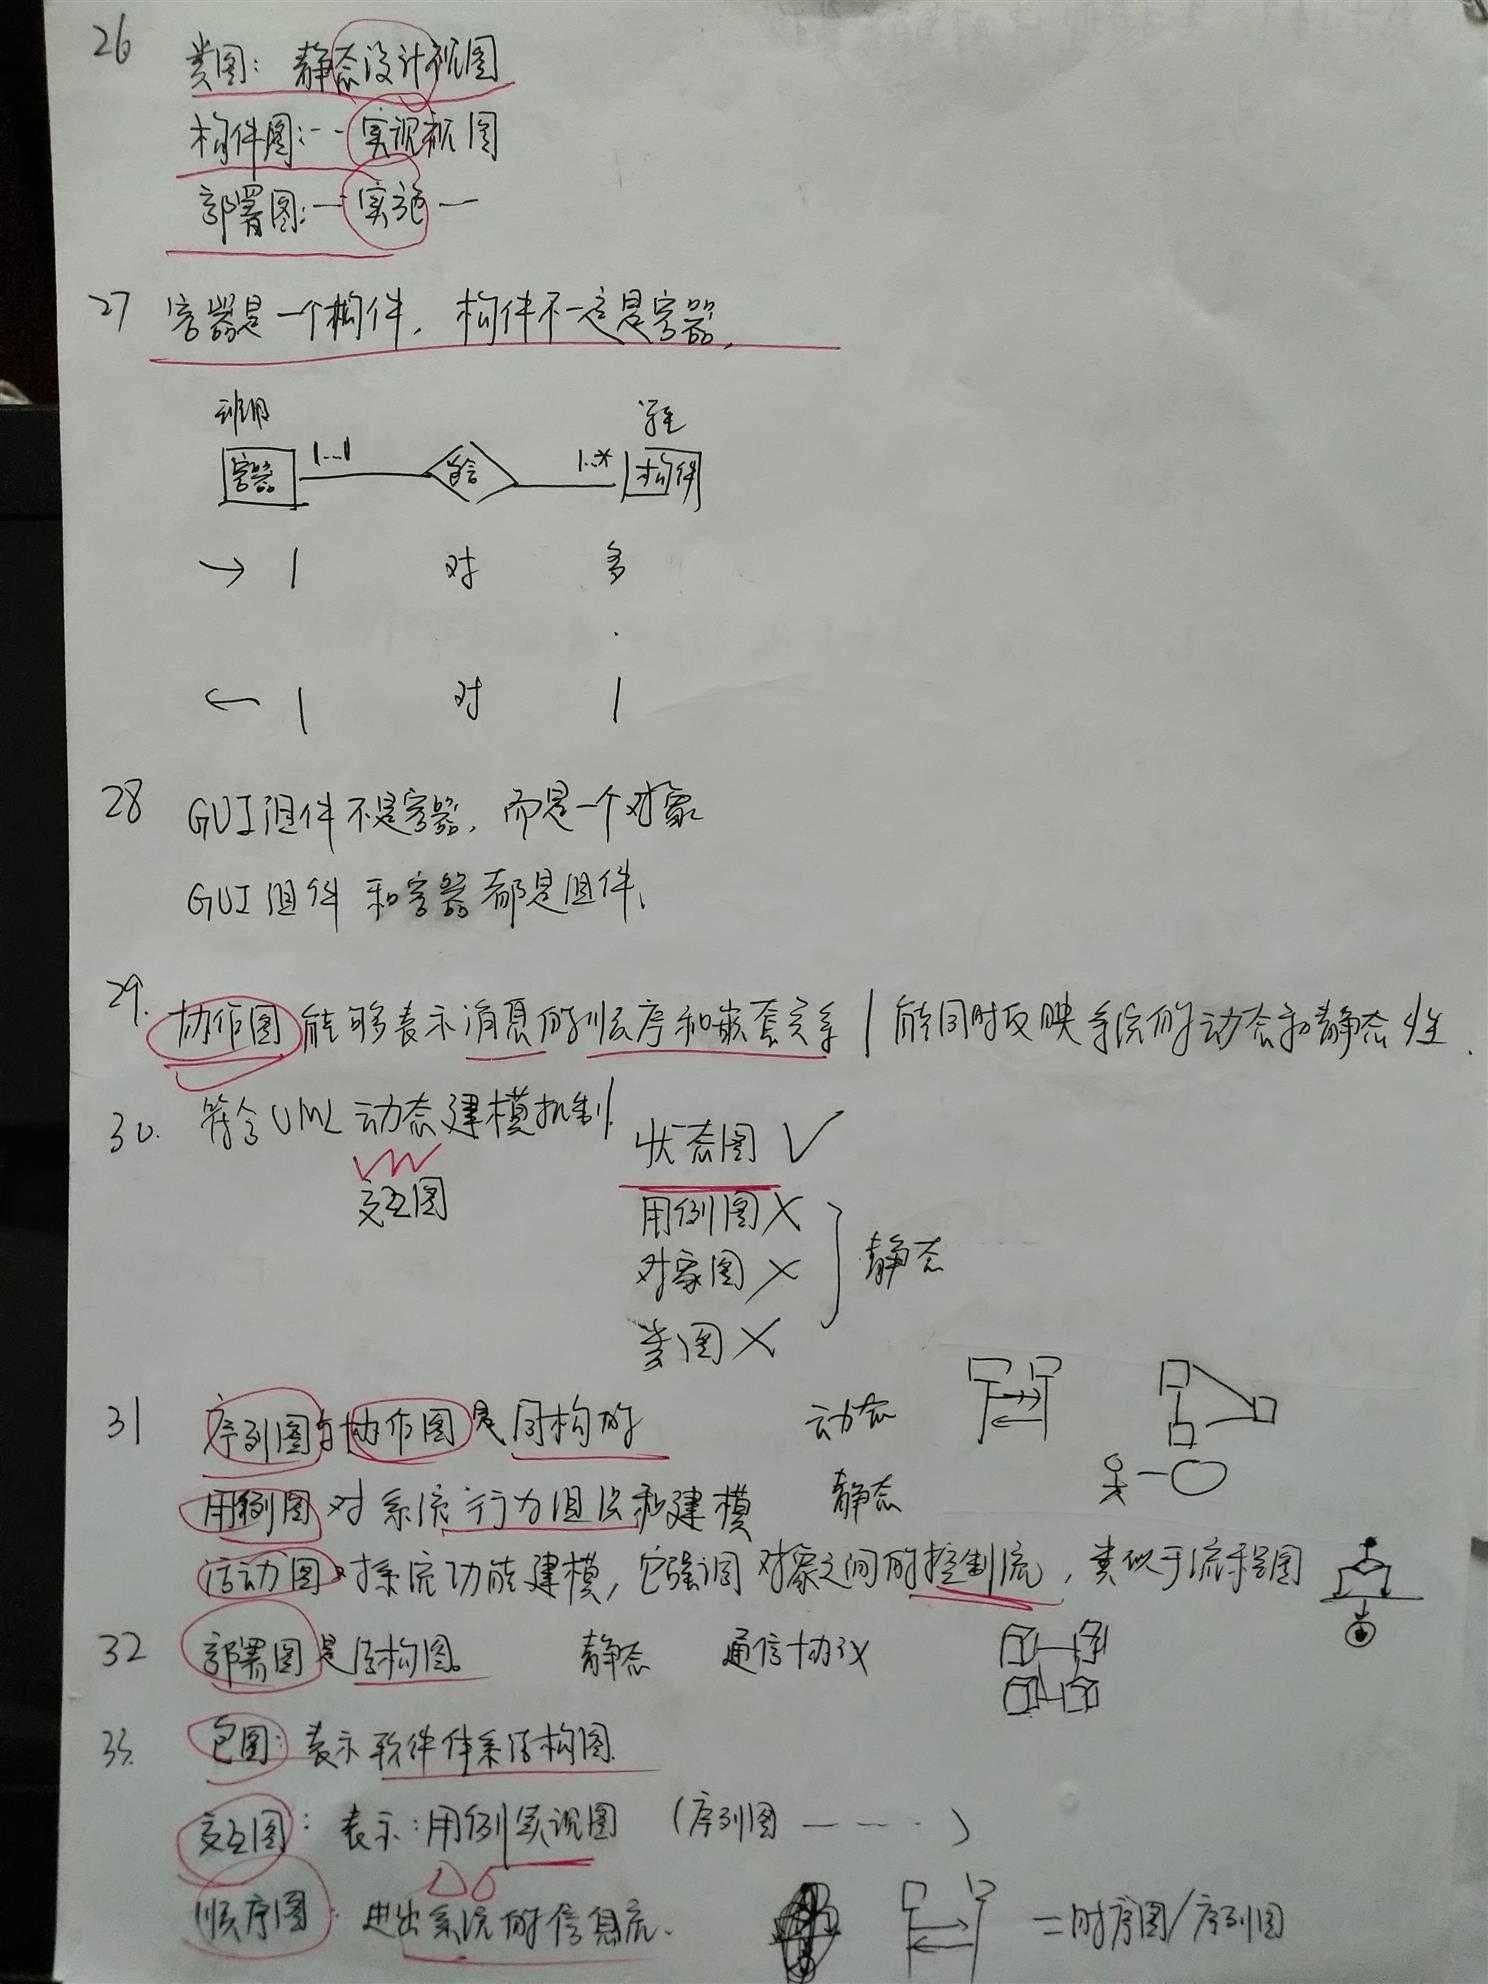 26
类图：静态设计视图
构件图：-- 实现视图
部署图：一 实施 一
27 容器是一个构件，构件不一定是容器。
班级 学生
容器 1...1 包含 1..* 构件
→ 1 对 多
← 1 对 1
28 GUI组件不是容器，而是一个对象
GUI组件和容器都是组件、
29. 协作图能够表示消息的顺序和嵌套关系 / 能同时反映系统的动态和静态性.
30. 符合UML动态建模机制
状态图 ✓
交互图
用例图 ✗
对象图 ✗ 静态
类图 ✗
31 序列图与协作图是同构的 动态
用例图对系统行为组织和建模 静态
活动图对系统功能建模，它强调对象之间的控制流，类似于流程图
32 部署图是结构图。 静态 通信协议
33. 包图：表示软件体系结构图.
交互图：表示：用例实现图 (序列图 — — - · )
顺序图：进出系统的信息流. = 时序图/序列图